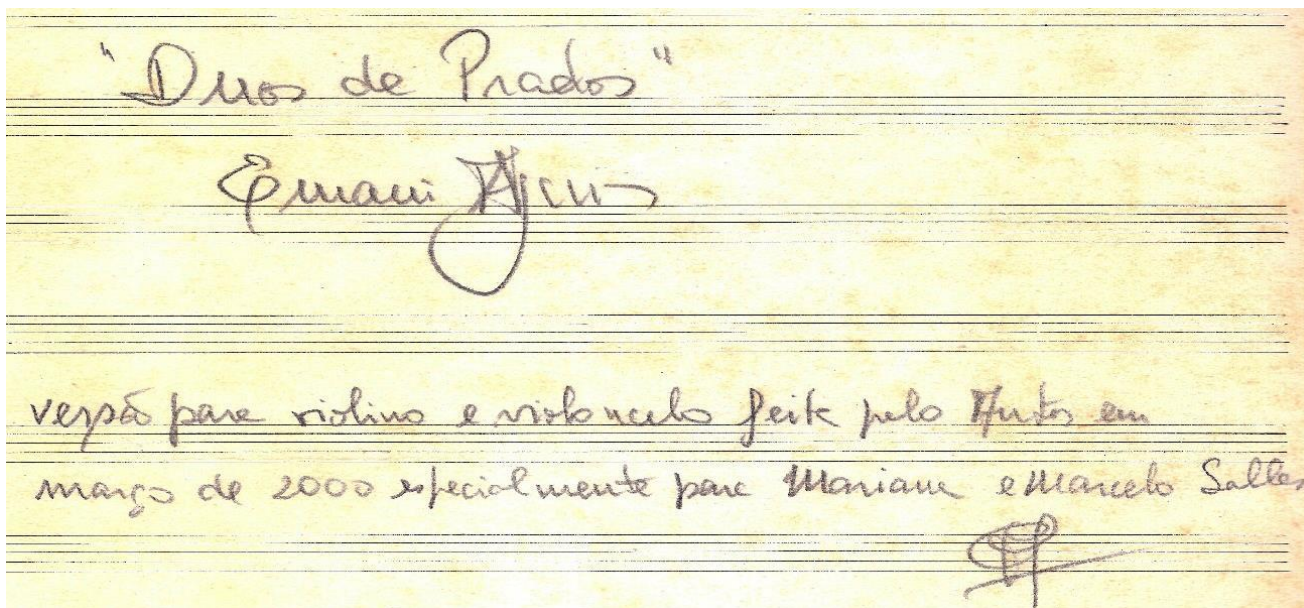 "Duos de Prados"
Ernani Aguiar
versão para violino e violoncelo feita pelo Autor em
março de 2000 especialmente para Mariana e Marcelo Salles